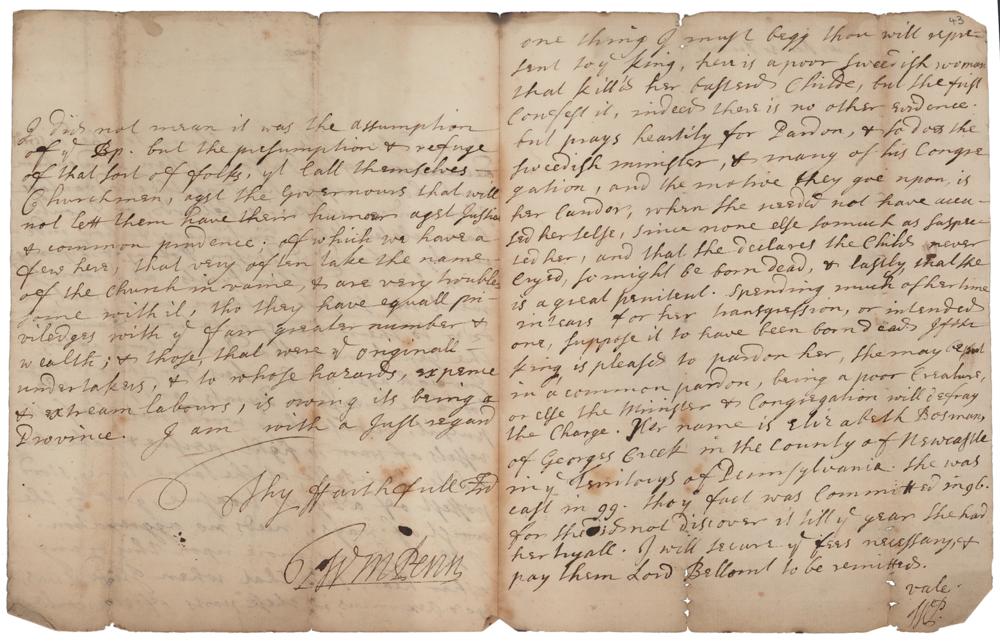 I did not mean it was the assumption
of ye Bp. but the presumption & refuge
of that sort of folks, yt call themselves
Churchmen, agst the Governours that will
not lett them have their humour agst Justice
& common prudence. of which we have a
few here, that very often take the name
of the Church in vaine, & are very trouble
some with it, tho they have equall pri-
viledges with ye farr greater number &
wealth; & those that were ye originall
undertakers, & to whose hazards, expence
& extream labours, is owing its being a
Province. I am with a Just regard
Thy ffaithfull Frd
Wm Penn
43
one thing I must begg thou will repre-
sent to ye king, here is a poor Sweedish woman
that kill'd her basterd Childe, but she first
Confest it, indeed there is no other evidence.
but prays heartily for Pardon, & so does the
Sweedish minister, & many of his Congre
gation, and the motive they goe upon, is
her Candor, when she needed not have accu-
sed her selfe, since none else somuch as suspec-
ted her, and that she declares the Child never
Cryed, so might be born dead, & lastly that she
is a great penitent. Spending much of her time
in tears for her transgression, or intended
one, suppose it to have been born dead. If the
king is pleased to pardon her, she may be put
in a common pardon, being a poor Creature,
or else the Minister & Congregation will defray
the Charge. Her name is Elizabeth Bosman,
of Georges Creek in the County of Newcastle
in ye Territorys of Pennsylvania. She was
cast in 99. thoy fact was Committed in 96.
for she did not discover it till ye year she had
her tryall. I will secure ye fees necessary, &
pay them Lord Bellomt to be remitted.
vale.
WP.